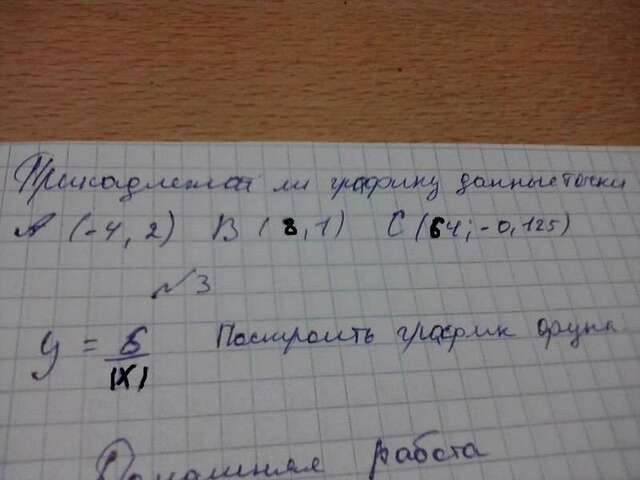 Принадлежат ли графику данные точки
A (-4, 2) B (8, 1) C (64; -0,125)
№3
y = 6/|x| Построить график функ
Домашняя работа